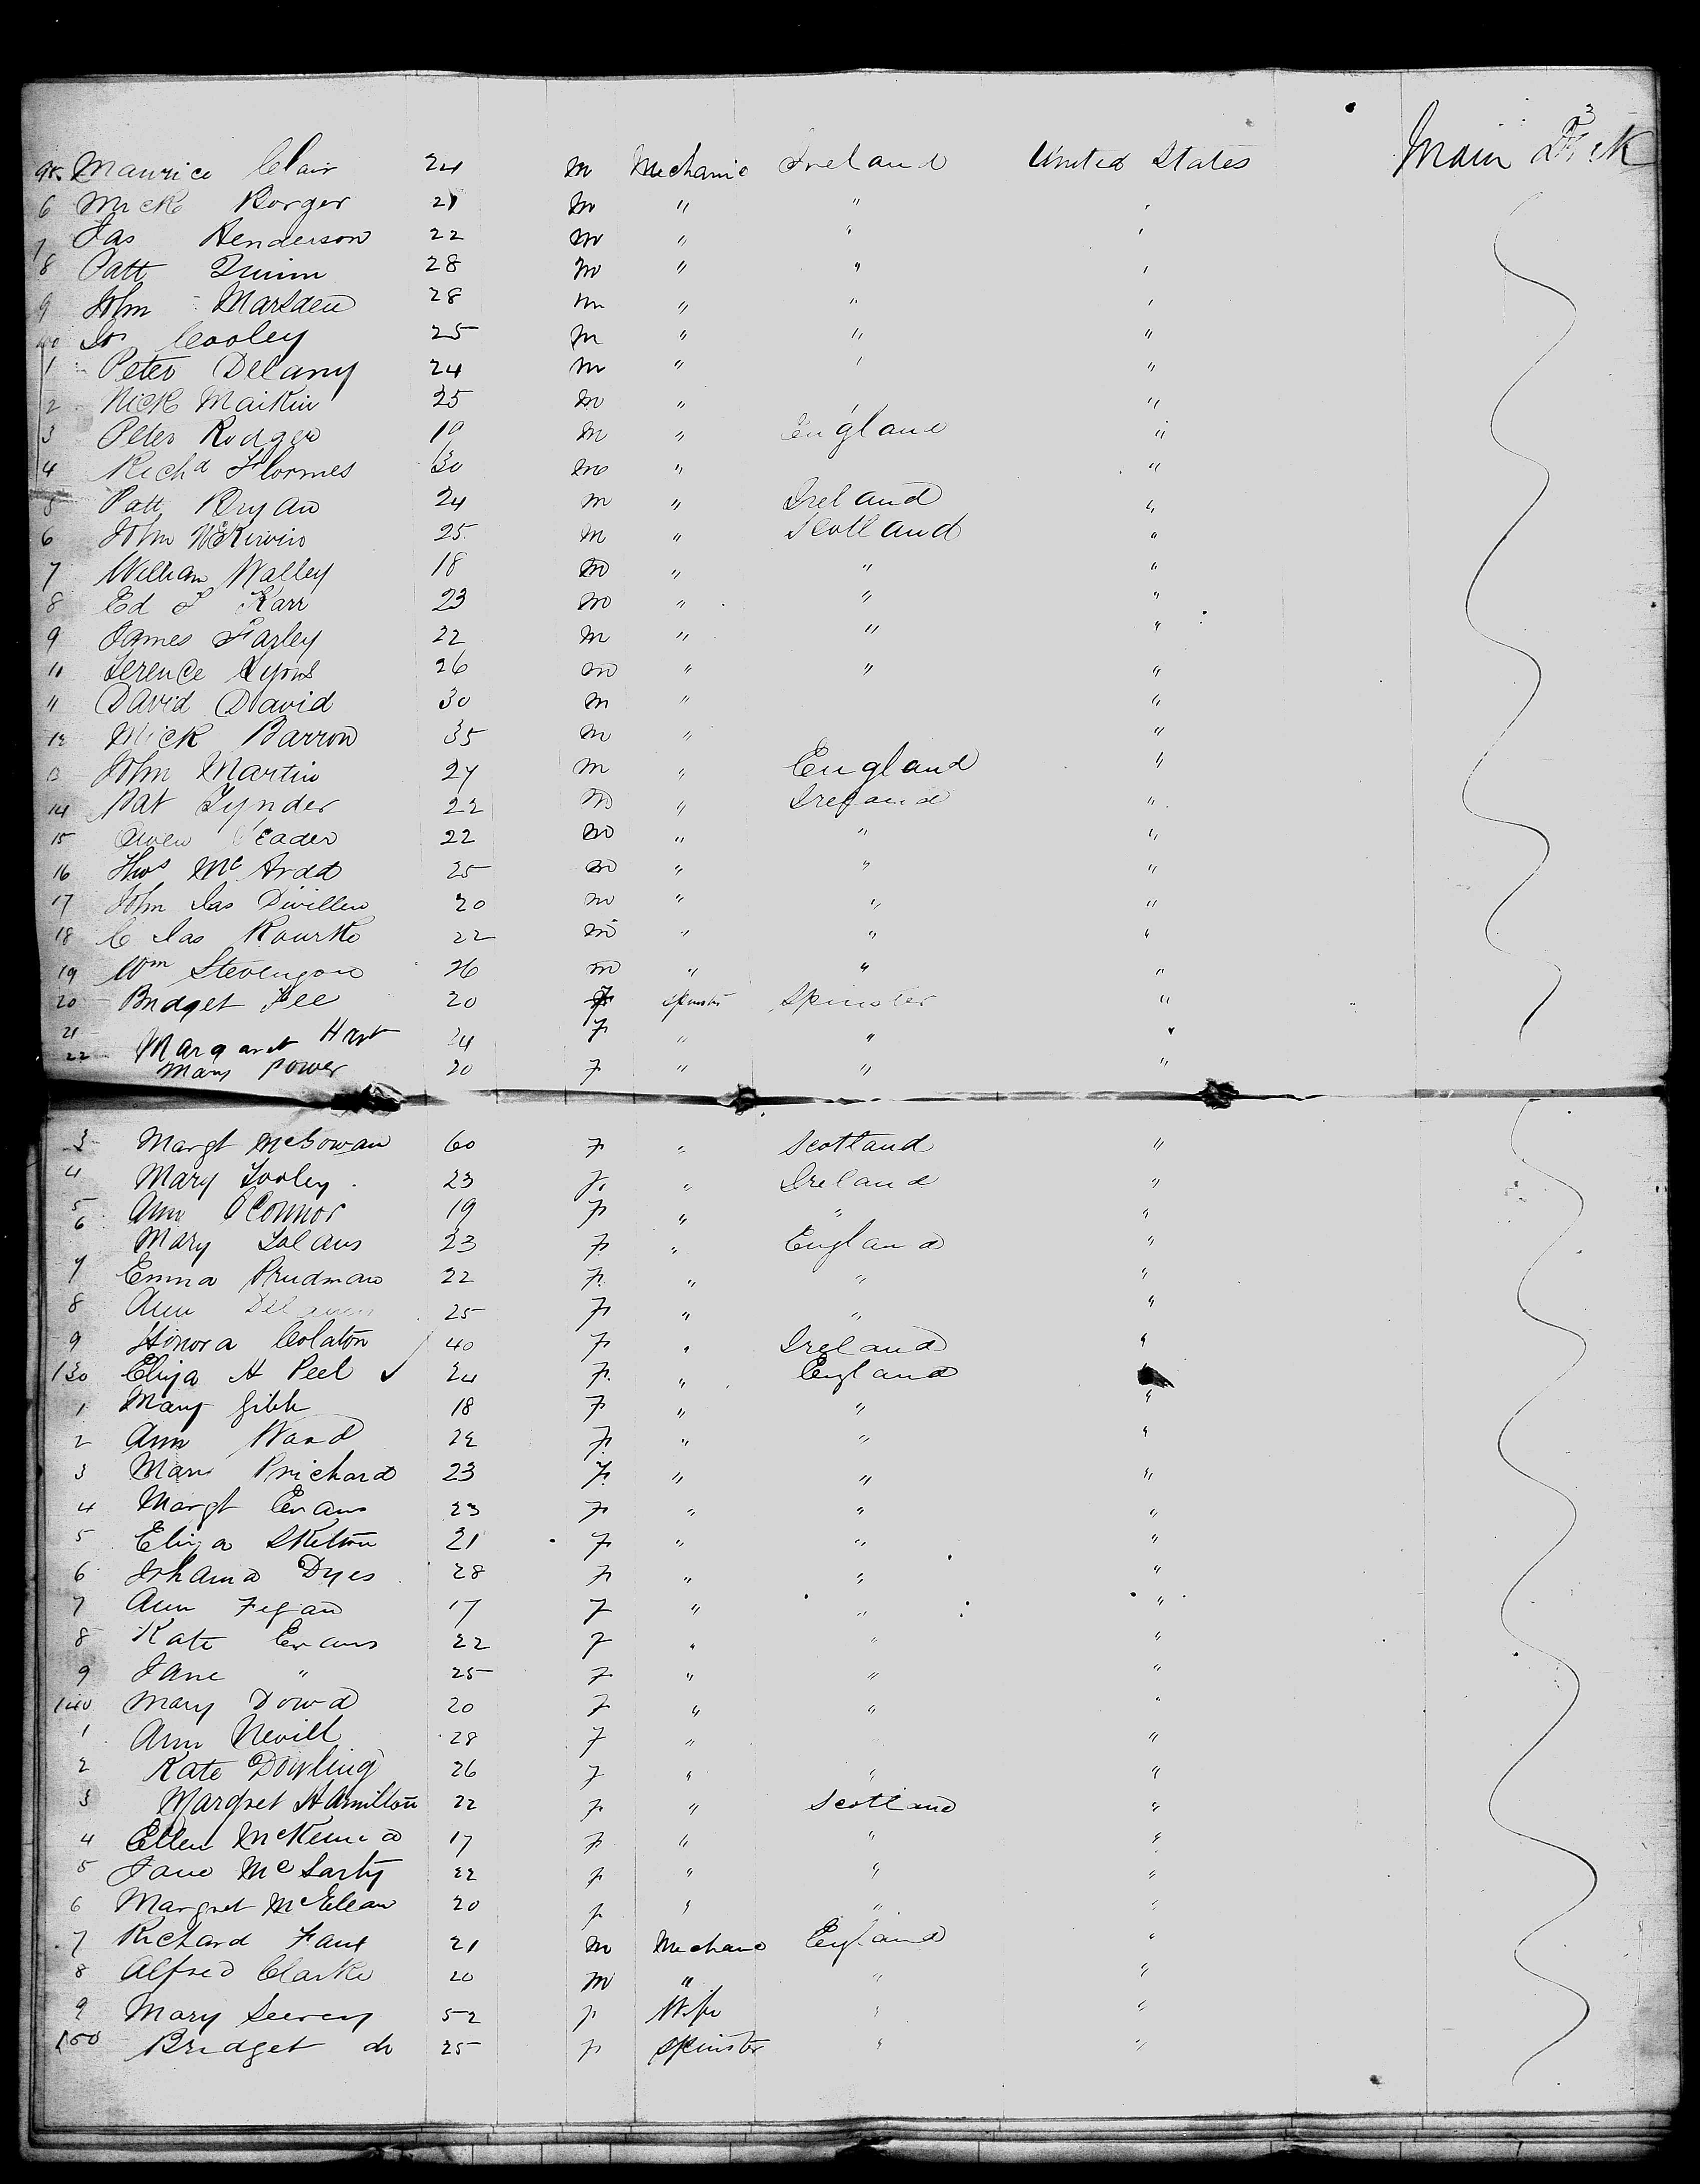 3
95 Maurice Clair 24 m Mechanic Ireland United States Main Deck
6 Mick Rorger 21 m " " "
7 Jas Henderson 22 m " " "
8 Patt Quinn 28 m " " "
9 John Marsden 28 m " " "
Cooley 25 m " " "
1 Peter Delany 24 m " " "
2 Nick Maikin 25 m " " "
3 Peter Rodger 19 m " England "
4 Richd 30 m " "
5 Patt Bryan 24 m " Ireland "
6 John 25 m " Scotland "
7 William Walley 18 m " " "
8 Ed Karr 23 m " " "
9 James Farley 22 m " " "
" Terence Lyons 26 m " " "
" David David 30 m " "
12 Mick Barron 35 m " "
13 John Martin 24 m " England "
14 Pat Tynder 22 m " Ireland "
15 Owen 22 m " " "
16 Thos Mc Ardd 25 m " " "
17 John Jas Divillen 20 m " " "
18 C Jas Rourke 22 m " " "
19 Wm Stevenson 26 m " " "
20 Bridget Fee 20 F spinster Spinster "
21 Margaret Hart 24 F " " "
22 Mary Power 20 F " " "
3 Margt McGowan 60 F " Scotland "
4 Mary Tooley 23 F " Ireland "
5 Ann O'Connor 19 F " " "
6 Mary 23 F " England "
7 Emma Prudman 22 F " " "
8 Ann 25 F " " "
9 Honora Colaton 40 F " Ireland "
130 Eliza H Peel ✓ 24 F " England "
1 Mary Gibb 18 F " " "
2 Ann Ward 22 F " " "
3 Mary Prichard 23 F " " "
4 Margt Evans 23 F " " "
5 Eliza Skelton 21 F " " "
6 Johanna Dyes 28 F " " "
7 Ann Fegan 17 F " " "
8 Kate Evans 22 F " " "
9 Jane " 25 F " " "
140 Mary Dowd 20 F " " "
1 Ann Nevill 28 F " "
2 Kate Dowling 26 F " " "
3 Margret Hamilton 22 F " Scotland "
4 Ellen McKenna 17 F " " "
5 Jane Mc Larty 22 F " " "
6 Margret McClean 20 F " " "
7 Richard Faux 21 m Mechanic England "
8 Alfred Clarke 20 m " " "
9 Mary Seerey 52 F Wife " "
150 Bridget do 25 F Spinster " "